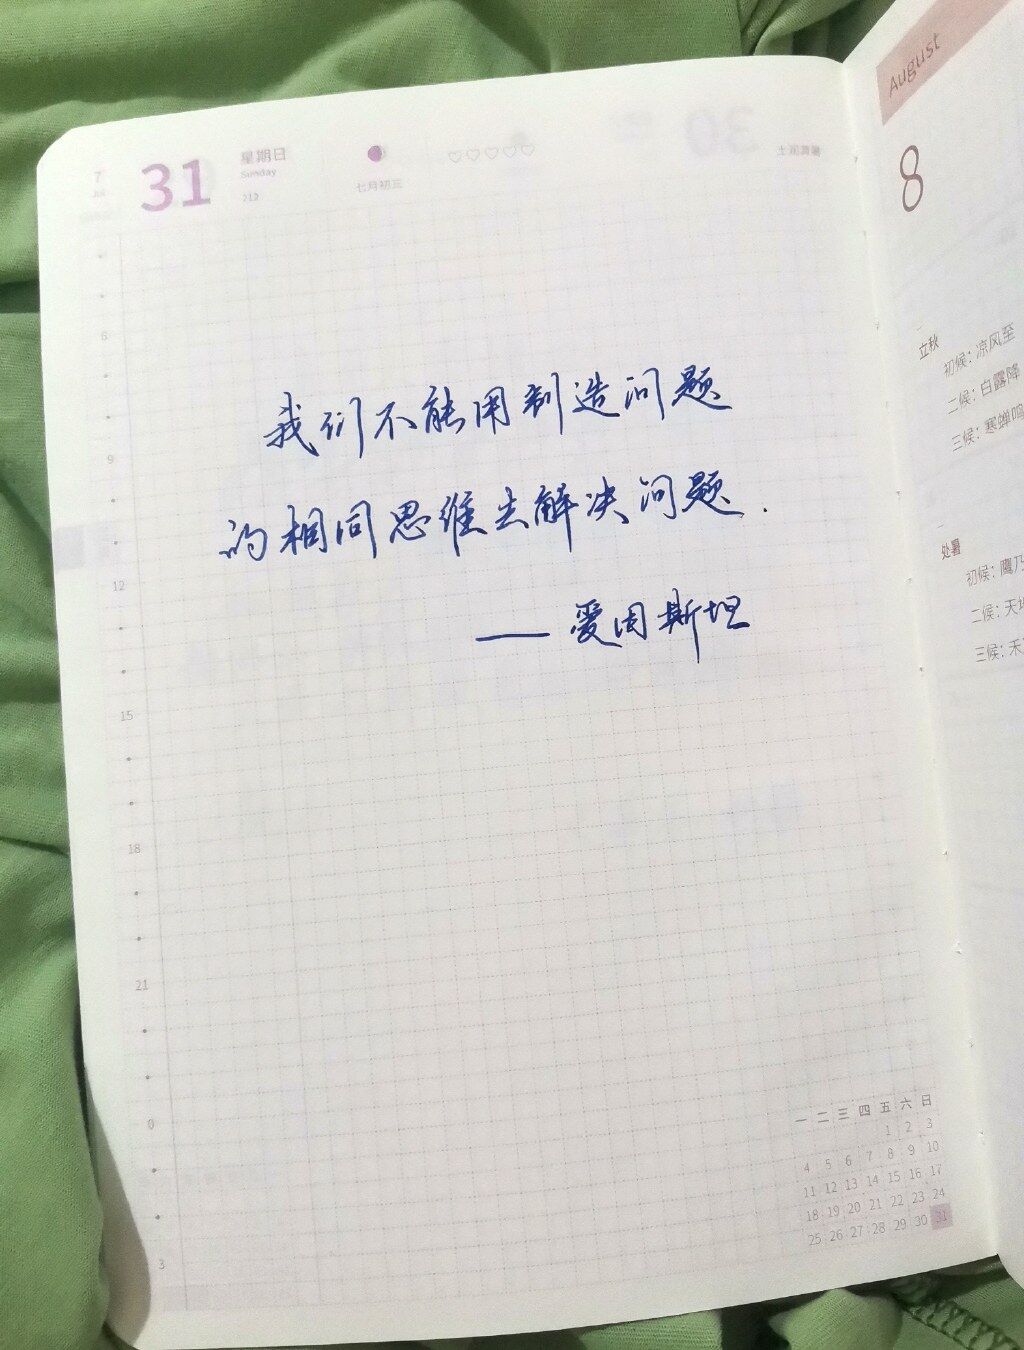 7
31
星期日
Sunday
212
七月初三
土润溽暑
6
9
12
15
18
21
0
3
我们不能用制造问题
的相同思维去解决问题.
——爱因斯坦
一 二 三 四 五 六 日
1 2 3
4 5 6 7 8 9 10
11 12 13 14 15 16 17
18 19 20 21 22 23 24
25 26 27 28 29 30 31
August
8
立秋
初候：凉风至
二候：白露降
三候：寒蝉鸣
处暑
初候：鹰乃
二候：天地
三候：禾